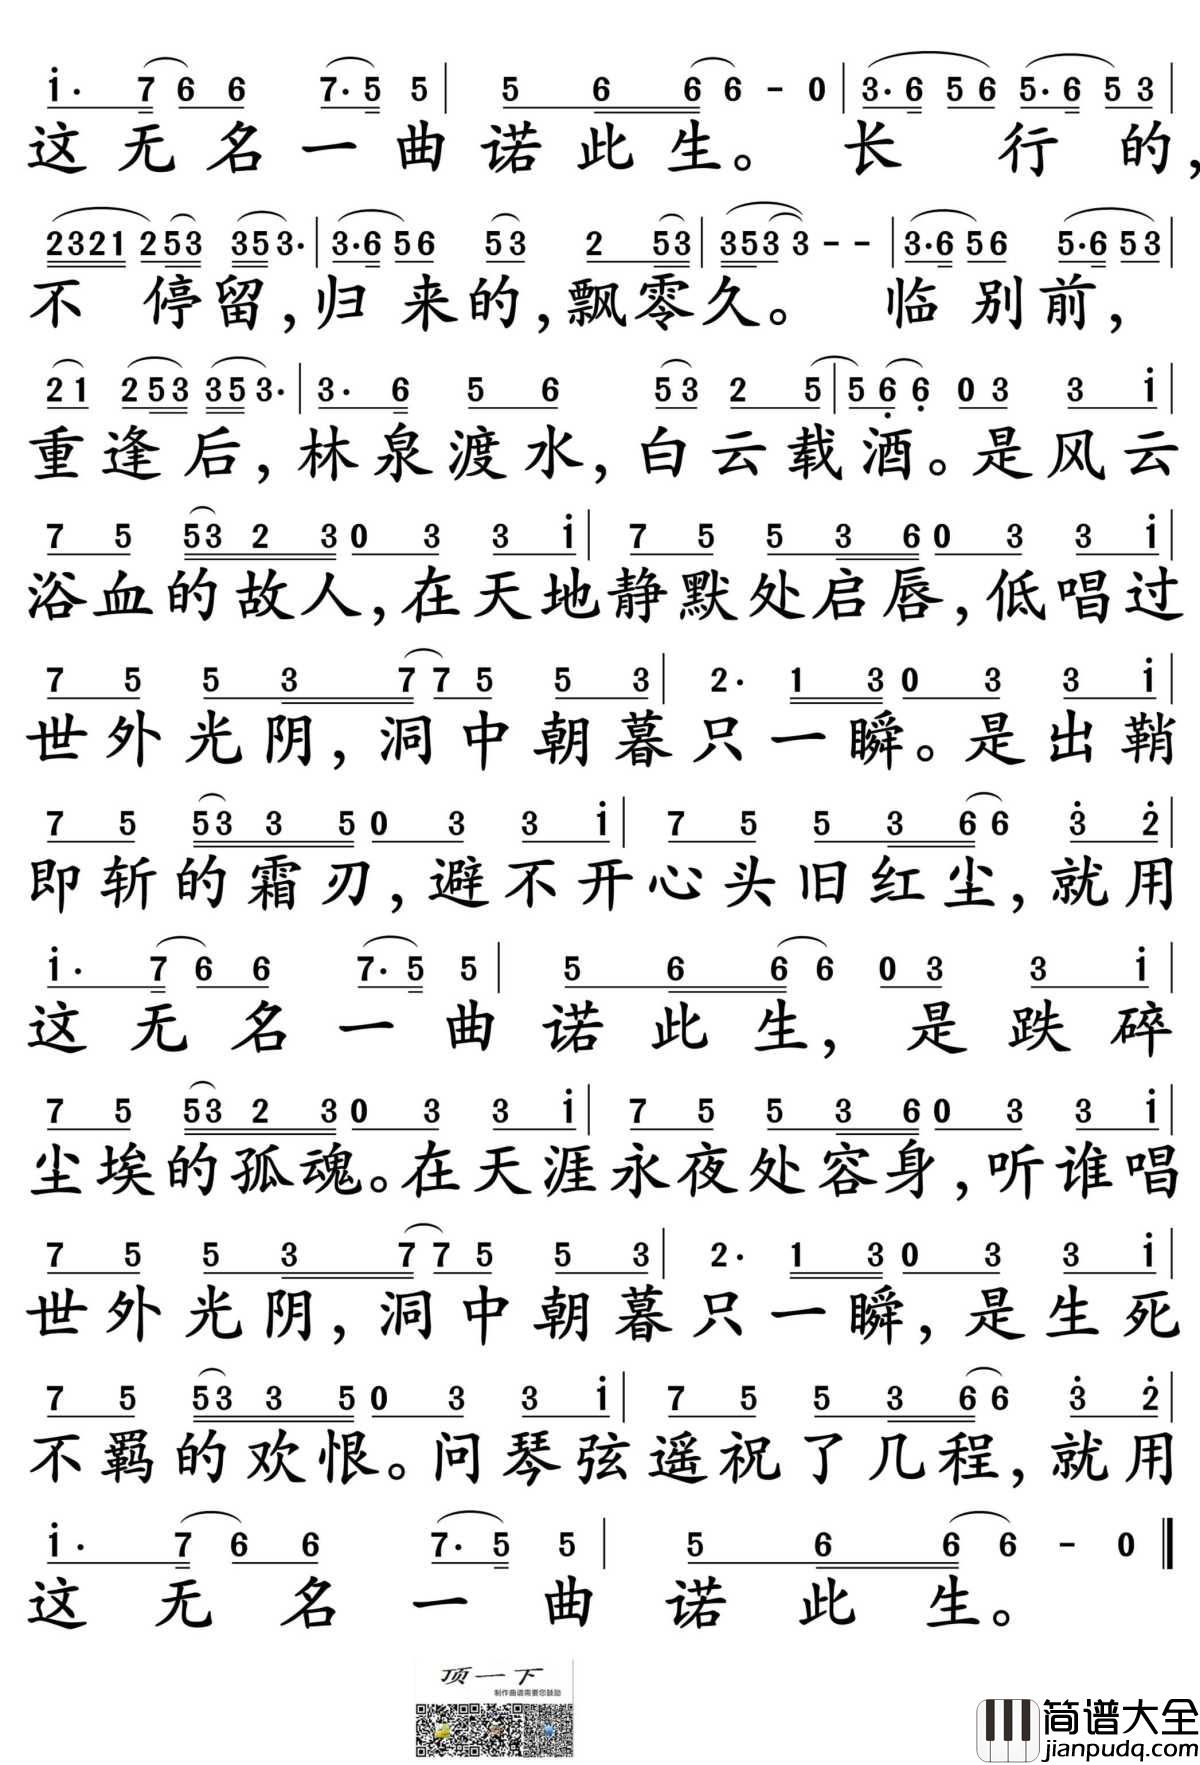 i· 7 6 6 7· 5 5 | 5 6 6 6 - 0 | 3· 6 5 6 5· 6 5 3 |
这无名一曲诺此生。长行的,
2321 253 353· | 3· 6 56 53 2 53 | 353 3 - - | 3· 6 56 5· 6 53 |
不停留,归来的,飘零久。临别前,
21 253 353· | 3· 6 5 6 53 2 5 | 5 6̣ 6̣ 0 3 3 i |
重逢后,林泉渡水,白云载酒。是风云
7 5 53 2 3 0 3 3 i | 7 5 5 3 6 0 3 3 i |
浴血的故人,在天地静默处启唇,低唱过
7 5 5 3 7 7 5 5 3 | 2· 1 3 0 3 3 i |
世外光阴,洞中朝暮只一瞬。是出鞘
7 5 53 3 5 0 3 3 i | 7 5 5 3 6 6 3̇ 2̇ |
即斩的霜刃,避不开心头旧红尘,就用
i· 7 6 6 7· 5 5 | 5 6 6 6 0 3 3 i |
这无名一曲诺此生,是跌碎
7 5 53 2 3 0 3 3 i | 7 5 5 3 6 0 3 3 i |
尘埃的孤魂。在天涯永夜处容身,听谁唱
7 5 5 3 7 7 5 5 3 | 2· 1 3 0 3 3 i |
世外光阴,洞中朝暮只一瞬,是生死
7 5 53 3 5 0 3 3 i | 7 5 5 3 6 6 3̇ 2̇ |
不羁的欢恨。问琴弦遥祝了几程,就用
i· 7 6 6 7· 5 5 | 5 6 6 6 - 0 ‖
这无名一曲诺此生。
顶一下
制作曲谱需要您鼓励
简谱大全
jianpudq.com